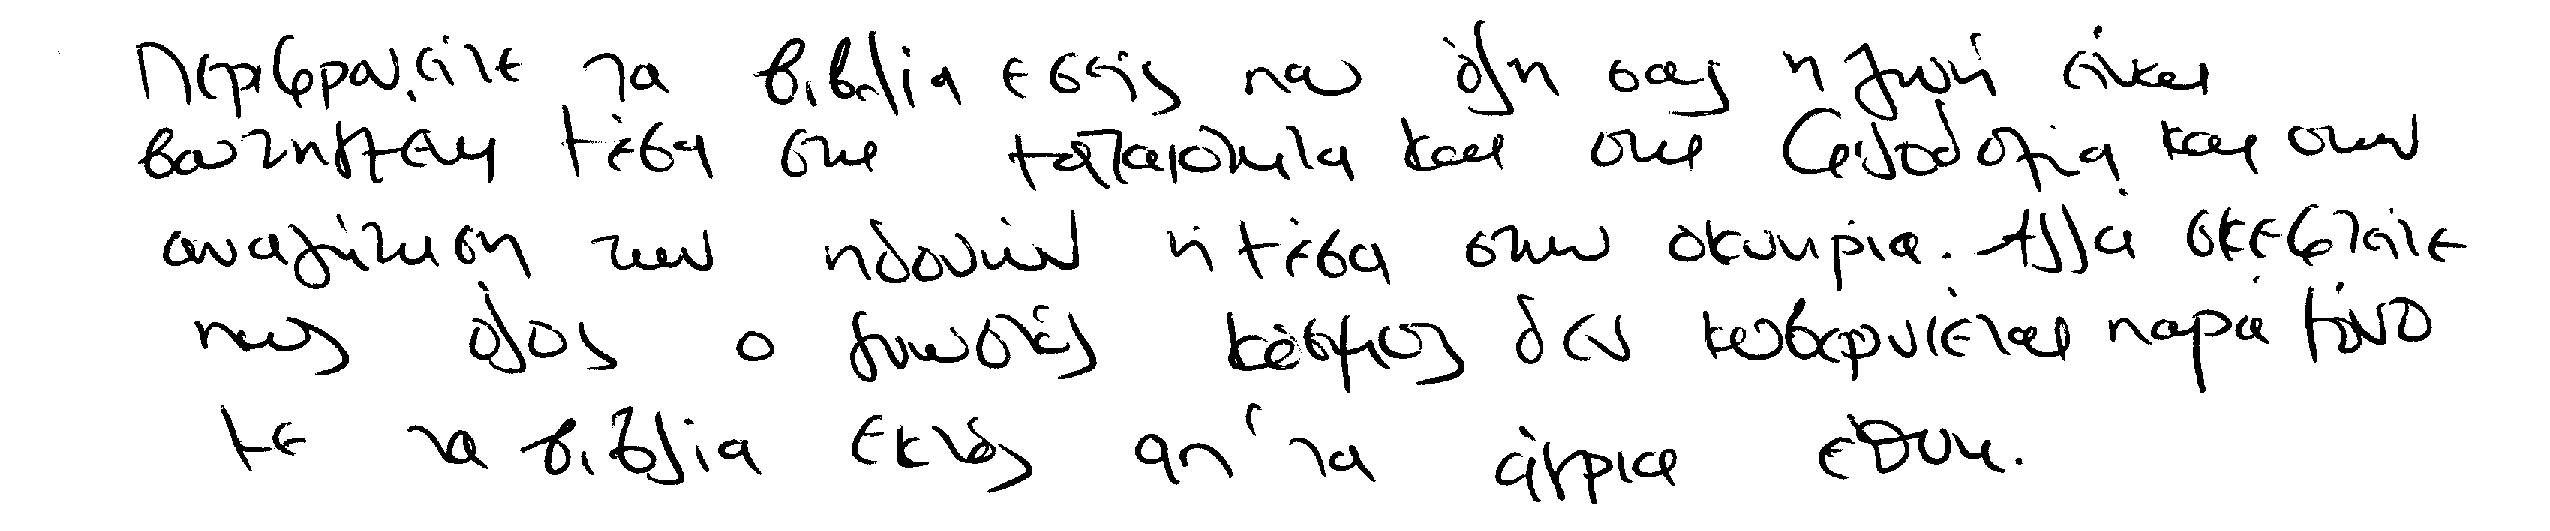 Περιφρονείτε τα βιβλία εσείς που όλη σας η ζωή είναι
βουτηγμένη μέσα στη ματαιοδοξία και στη φιλοδοξία και στην
αναζήτηση των ηδονών ή μέσα στην οκνηρία. Αλλά σκεφτείτε
πως όλος ο γνωστός κόσμος δεν κυβερνιέται παρά μόνο
με τα βιβλία εκτός απ' τα άγρια έθνη.